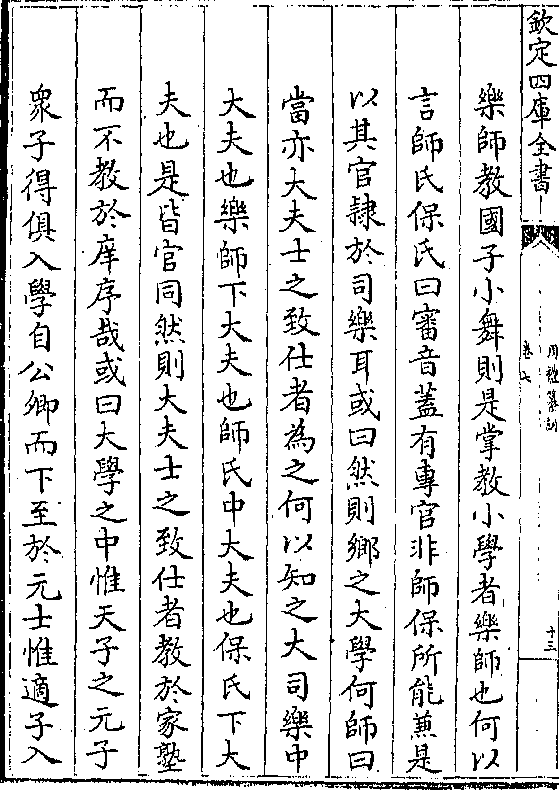 欽定四庫全書
周禮纂訓
卷七
十三
樂師教國子小舞則是掌教小學者樂師也何以
言師氏保氏曰審音蓋有專官非師保所能兼是
以其官隸於司樂耳或曰然則鄉之大學何師曰
當亦大夫士之致仕者為之何以知之大司樂中
大夫也樂師下大夫也師氏中大夫也保氏下大
夫也是皆官同然則大夫士之致仕者教於家塾
而不教於庠序哉或曰大學之中惟天子之元子
衆子得俱入學自公卿而下至於元士惟適子入